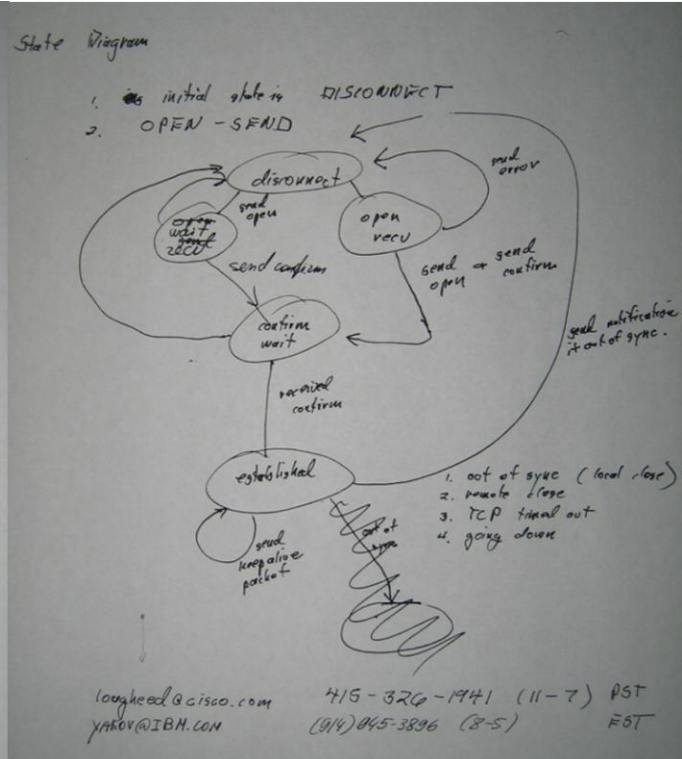 State Diagram
1. initial state is DISCONNECT
2. OPEN - SEND
disconnect
send
error
send
open
open
wait
recv
open
recv
send confirm
send
open + send
confirm
confirm
wait
send notification
if out of sync.
received
confirm
established
1. out of sync (local close)
2. remote close
3. TCP timed out
4. going down
out of
sync
send
keepalive
packet
lougheed@cisco.com 415-326-1941 (11-7) PST
YAKOV@IBM.COM (914) 945-3896 (8-5) EST